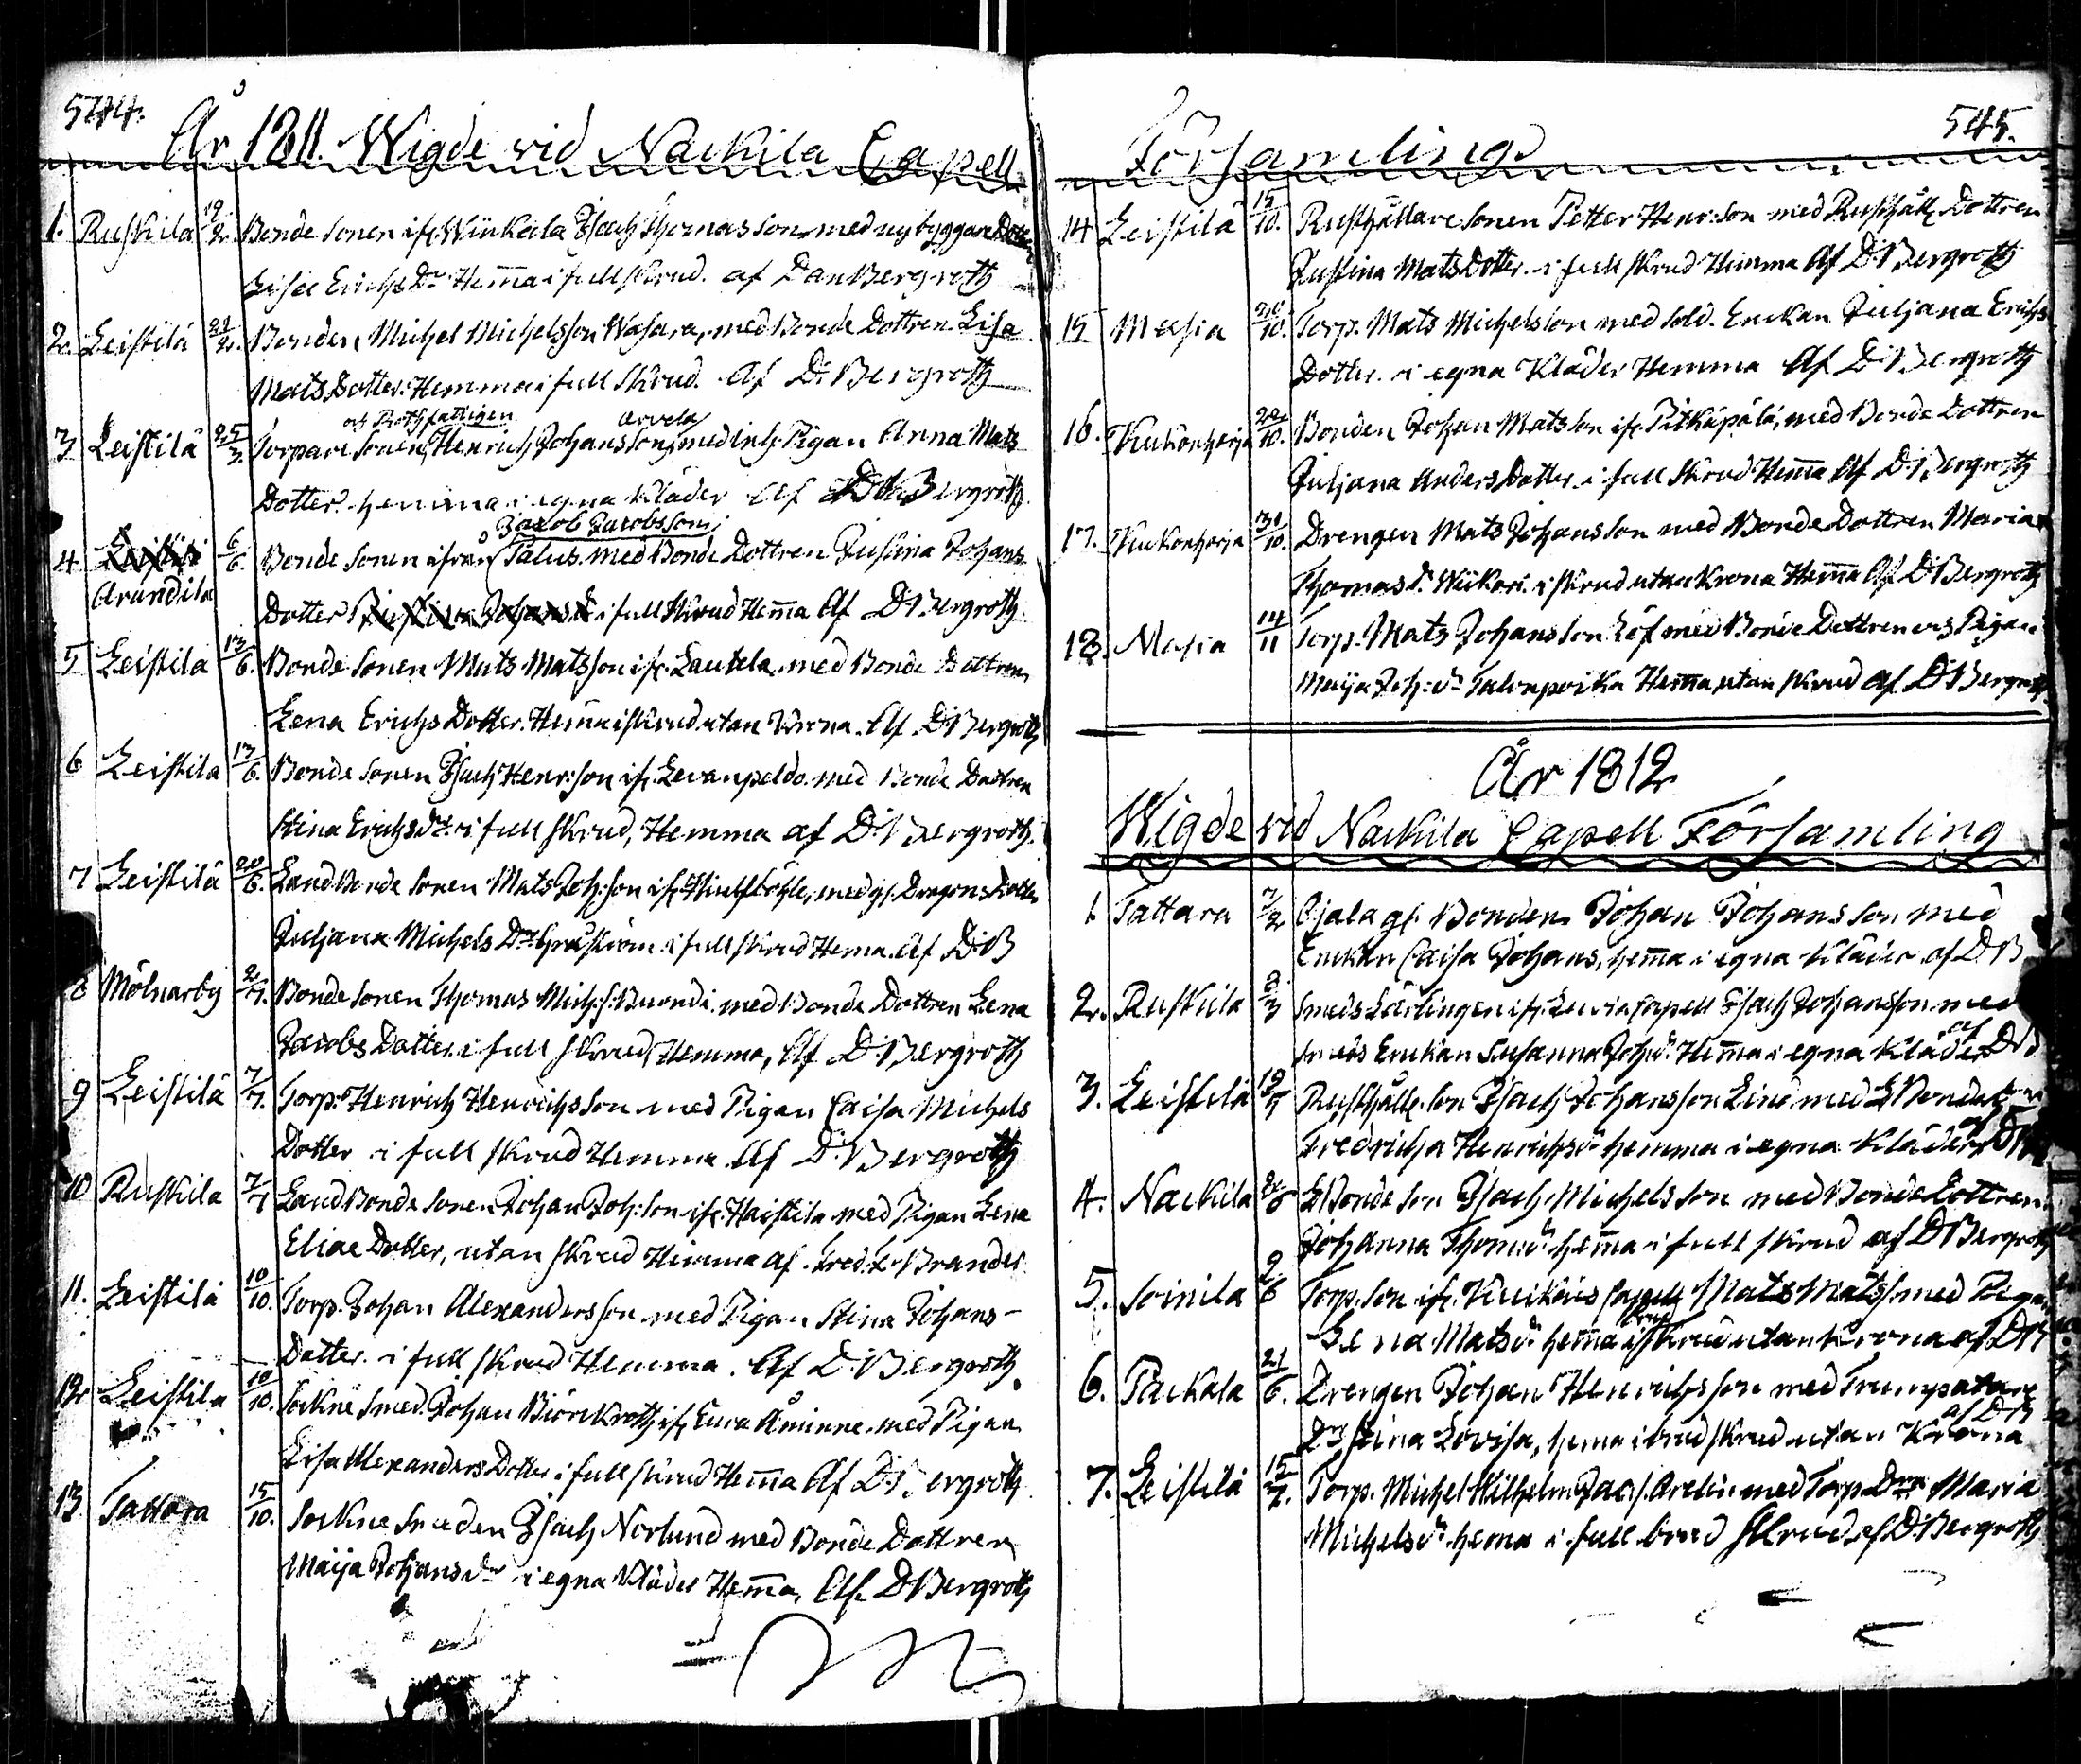 544.
År 1811. Wigde vid Nackila Capell
1. Ruskila 19/2. Bonde Sonen ifr. Wiikala Isach Thomas Son, med nybyggare Dotter
Lisa Erichs Dr Hem̄a i full skrud. af Dan Bergroth
2. Leistilä 21/2. Bonden Michel Michelsson Wasara, med Bonde Dottren Lisa
Mats Dotter. Hemma i full skrud. Af D. Bergroth
och Rothfattigen Arvela
3 Leistilä 25/3. Torpare Sonen, Henrich Johansson, med Inh. Pigan Anna Mats
Dotter. hemma i egna kläder af Bergroth.
Jacob Jacobsson
4 Arundila 6/6. Bonde Sonen ifrån Palus med Bonde Dottren Justina Johans
Dotter i full skrud Hem̄a Af D. Bergroth
5 Leistila 13/6. Bonde Sonen Mats Matsson ifr. Lautela med Bonde Dottren
Lena Erichs Dotter. Hem̄a i skrud utan Krona. Af D. Bergroth
6 Leistila 13/6. Bonde Sonen Isach Henr:son ifr. Levanpeldo med Bonde Dottren
Stina Erichs dr. i full skrud, Hemma af D. Bergroth.
7 Leistilä 24/6. Land Bonde Sonen Mats Joh:son ifr. med gl. Dragons Dotter
Juljana Michels Dr i full skrud Hema. Af D. B
8 Mölnarby 2/7. Bonde Sonen Thomas Mich:s. Buordi med Bonde Dottren Lena
Jacobs Dotter. i full skrud, Hemma, Af D. Bergroth
9 Leistilä 7/7. Torp. Henrich Henrichs Son med Pigan Caisa Michels
Dotter i full skrud Hemma Af D. Bergroth
10 Ruskila 7/7 Land Bonde Sonen Johan Joh:son ifr. Haistila med Pigan Lena
Eliae Dotter, utan skrud Hemma af Fred. Brander
11. Leistilä 10/10. Torp. Johan Alexandersson med Pigan Stina Johans-
Dotter. i full skrud Hemma. Af D. Bergroth.
12 Leistila 10/10. Sockne Smed. Johan Biörckroth ifr Eura Åminne. med Pigan
Lisa Alexanders Dotter i full skrud Hem̄a Af D. Bergroth
13 Tattara 15/10. Sockne Smeden Isach Norlund med Bonde Dottren
Maija Johans dr i egna kläder Hem̄a, Af D Bergroth
545.
Församling
14 Leistilä 15/10. Rusthållare Sonen Petter Henr:son med Rusthåll. Dottren
Justina Mats Dotter. i full skrud Hemma Af D. Bergroth
15 Masia 20/10. Torp. Mats Michelsson med Sold. Enckan Juljana Erichs
Dotter. i egna Kläder Hemma Af D. Bergroth
16. Kukonharja 22/10. Bonden Johan Matsson ifr. Pitkäpälä, med Bonde Dottren
Juljana Anders Dotter. i full skrud Hem̄a Af D. Bergroth
17. Kukonharja 31/10. Drengen Mats Johansson med Bonde Dottren Maria
Thomas d. Wiikari. i skrud utan Krona Hem̄a Af D. Bergroth
18. Masia 14/11 Torp. Mats Johansson Löf med Bonde Dottren och Pigan
Maija Joh: dr Talonpoika Hem̄a utan skrud af D. Bergroth.
År 1812
Wigde vid Nackila Capell Församling
1. Tattara 7/2 Ojala gl. Bonden Johan Johansson med
Enckan Caisa Johans, hem̄a i egna kläder af D. B
2. Ruskila 8/3 Smeds Lärlingen ifr. Capell Isach Johansson med
smeds Enckan Susanna Joh:dr. Hem̄a i egna kläder af D. B
3. Leistilä Rusthåll. son Isach Johansson Lind med
Fredricha Henrichs dr hemma i egna kläder,
4. Nackila L. Bonde son Isach Michelsson med Bonde Dottren
Johanna Thom:dr. hem̄a i full skrud af D Bergroth
5. Soinila 9/6 Torp. Son ifr. Kiukäis Capell Mats Matss. med Pigan
Lena Mats dr hem̄a i brud skrud utan krona af DB
6. Packala 21/6. Drengen Johan Henrichsson med Trumpatare
Dr Stina Lovisa, hema i brud skrud utan Krona af DB
7. Leistilä 15/7. Torp. Michel Wilhelm Jac:s. Arelin med Torp. Drn Maria
Michels dr. hema i full brud skrud af D. Bergroth